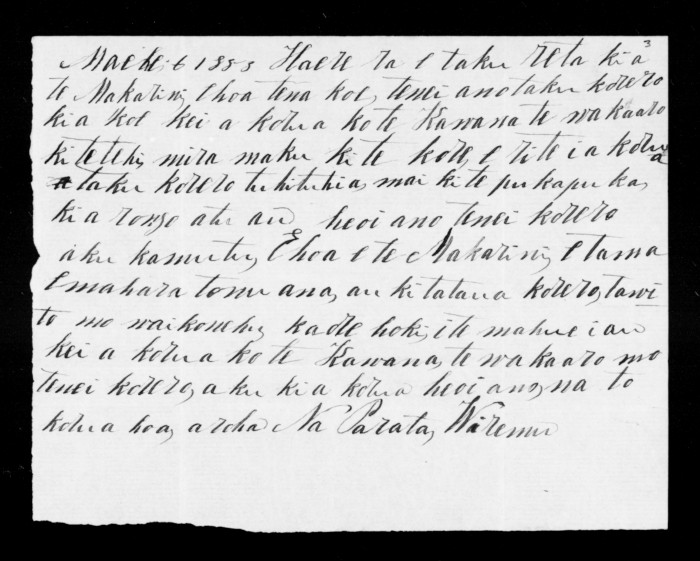 Maehe 6 1855 Haere ra e taku reta ki a 3
te Makarini, E hoa tena koe, tenei ano taku korero
ki a koe kei a korua ko te Kawana te wakaaro
ki tetehi, mira maku ki te kore, e rite i a korua
taku korero tuhituhia, mai ki te pukapuka,
ki a rongo atu au heoi ano tenei korero
aku kamutu, E hoa e te Makarini, E tama
E mahara tonu ana, au ki ta taua korero, tawi
to mo waikonehu, kaore hoki, i te mahue i au
kei a korua ko te Kawana, te wakaaro mo
tenei korero, aku ki a korua heoi ano, na to
korua hoa, aroha Na Parata, Wiremu